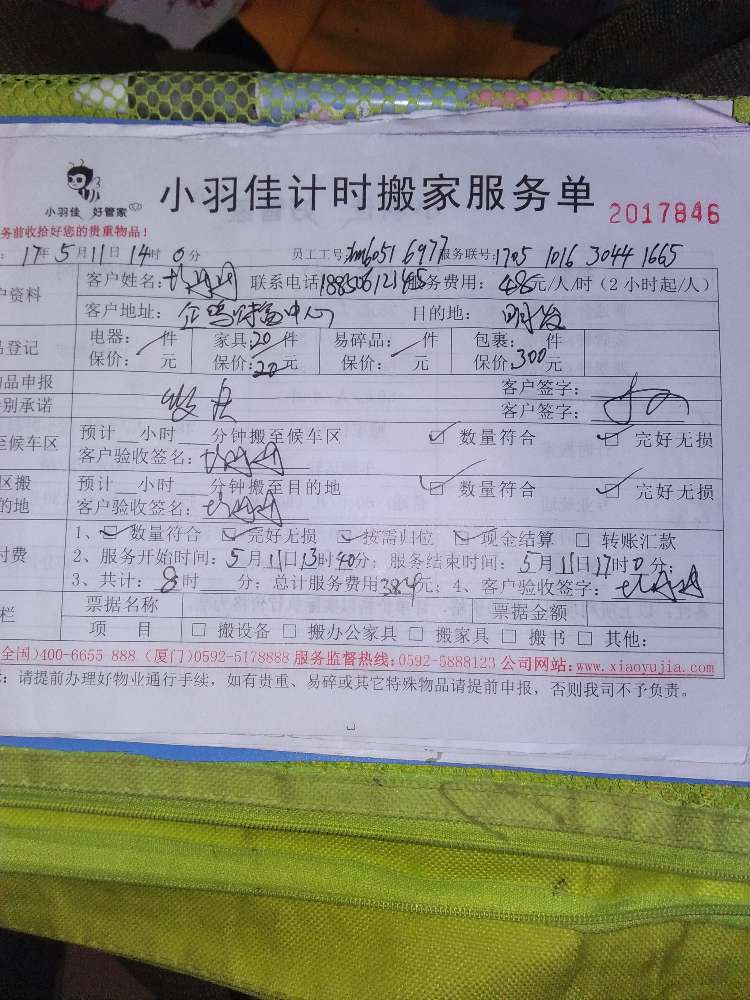 小羽佳 好管家
小羽佳计时搬家服务单
2017846
务前收拾好您的贵重物品!
: 17年5月11日14时0分 员工工号: 6051 6977 服务联号: 1705 1016 3044 1665
户资料 客户姓名: 联系电话18850612145服务费用: 48元/人/时(2小时起/人)
客户地址: 中心 目的地: 明发
品登记 电器: 件 家具:20件 易碎品: 件 包裹: 件
保价: 元 保价:20元 保价: 元 保价:300元
物品申报 客户签字:
别承诺 客户签字:
至候车区 预计__小时 分钟搬至候车区 ☑ 数量符合 ☑ 完好无损
客户验收签名:
区搬 预计__小时 分钟搬至目的地 ☑ 数量符合 ☑ 完好无损
的地 客户验收签名:
1、☑ 数量符合 ☑ 完好无损 ☑ 按需归位 ☑ 现金结算 □ 转账汇款
付费 2、服务开始时间: 5月11日13时40分; 服务结束时间: 5月11日17时0分;
3、共计: 8时 分; 总计服务费用384元; 4、客户验收签字:
栏 票据名称 票据金额
项 目 □ 搬设备 □ 搬办公家具 □ 搬家具 □ 搬书 □ 其他:
全国)400-6655-888 (厦门)0592-5178888 服务监督热线:0592-5888123 公司网站:www.xiaoyujia.com
: 请提前办理好物业通行手续, 如有贵重、易碎或其它特殊物品请提前申报, 否则我司不予负责。